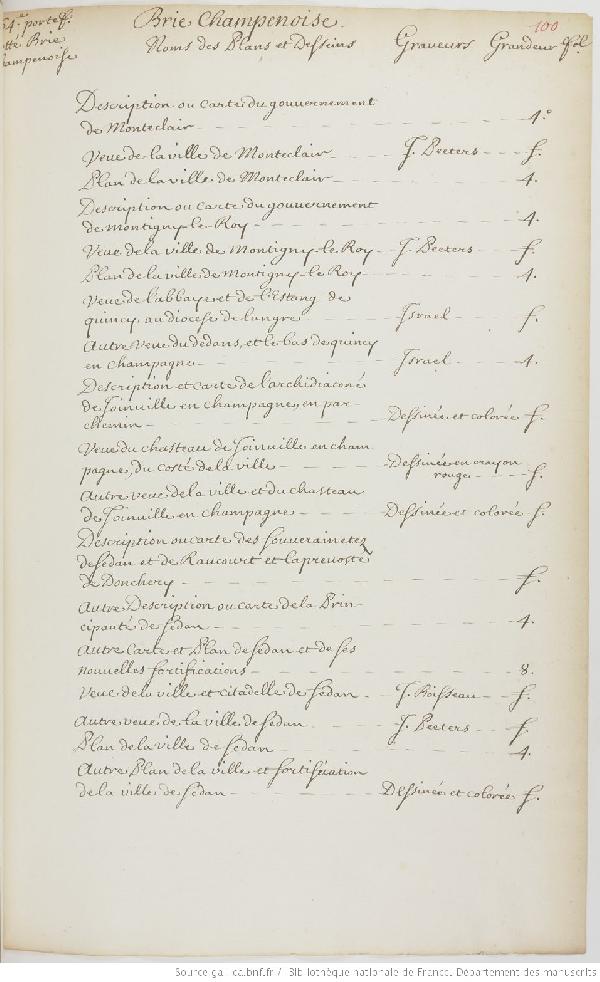 54.e portef.
Brie
Champenoise
Brie Champenoise.
100
Noms des Plans et Desseins Graveurs Grandeur fol.
Description ou carte du gouvernement
de Monteclair 4.o
Veue de la ville de Monteclair J. Peeters f.
Plan de la ville de Monteclair 4.
Description ou carte du gouvernement
de Montigny le Roy 4.
Veue de la ville de Montigny le Roy J. Peeters f.
Plan de la ville de Montigny le Roy 4.
Veue de l'abbaye et de l'Estang de
quincy, au diocese de langre Israel f.
Autre Veue du dedans, et le bas de quincy
en champagne Israel 4.
Description et carte de l'archidiaconé
de Joinville en champagne, en par-
chemin Dessinée et colorée f.
Veue du chasteau de Joinville en cham
pagne, du costé de la ville Dessinée en crayon
rouge f.
Autre veue de la ville et du chasteau
de Joinville en champagne Dessinée et colorée f.
Description ou carte des souverainetez
de sedan et de Raucourt et la prevosté
de Donchery f.
Autre Description ou carte de la Prin-
cipauté de sedan 4.
Autre Carte et Plan de sedan et de ses
nouvelles fortifications 8.
Veue de la ville et citadelle de sedan J. Boisseau f.
Autre veue de la ville de sedan J. Peeters f.
Plan de la ville de sedan 4.
Autre Plan de la ville et fortification
de la ville de sedan Dessinée et colorée f.
Source gallica.bnf.fr / Bibliothèque nationale de France. Département des manuscrits